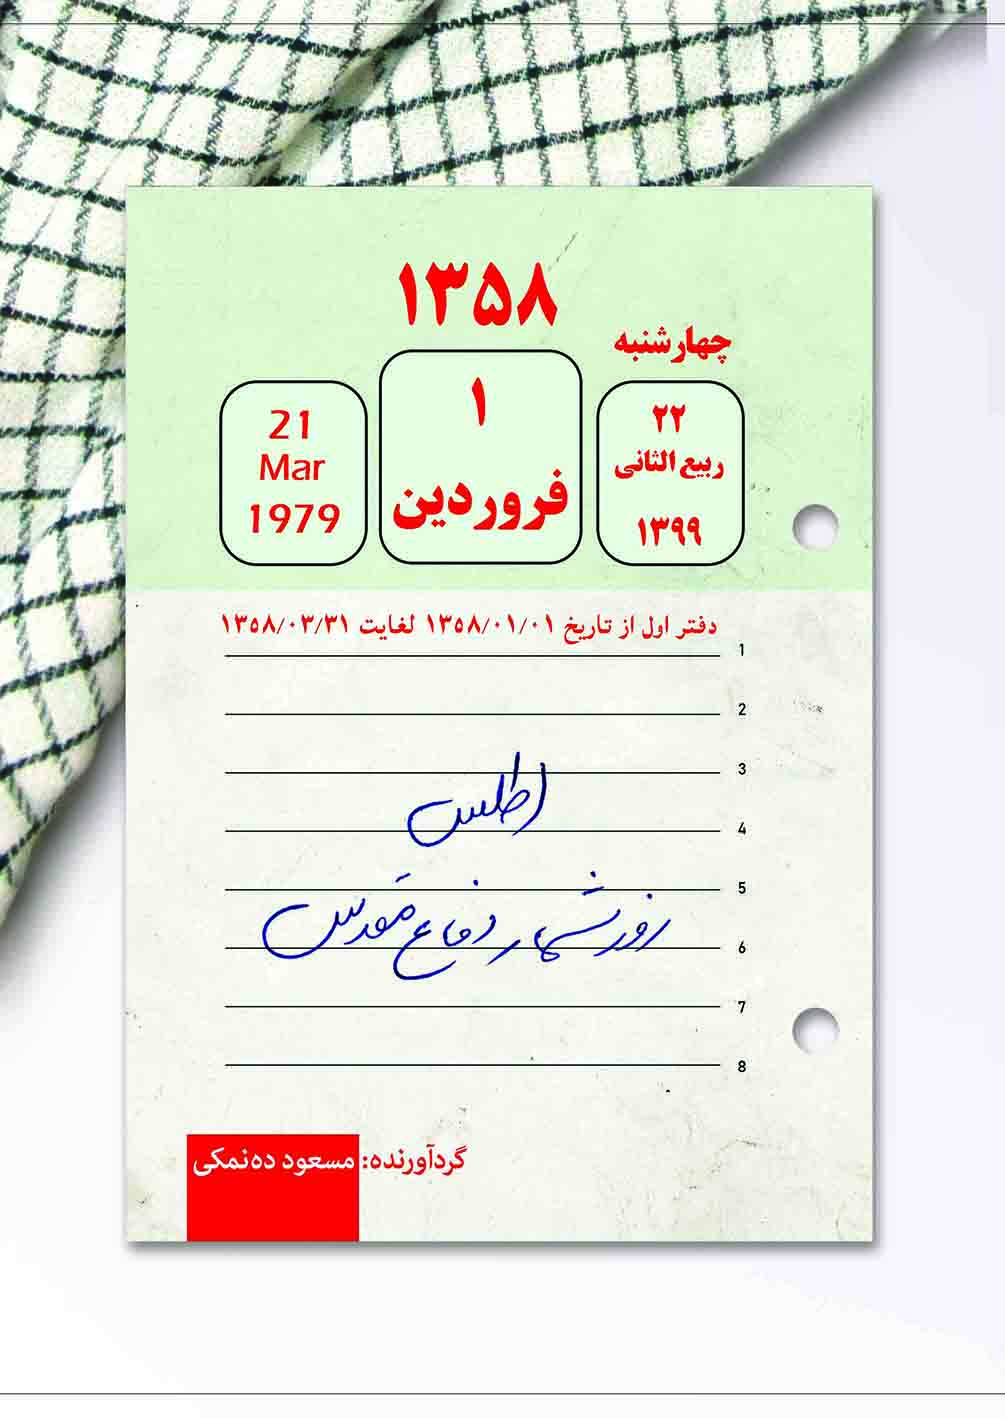 ۱۳۵۸
چهارشنبه
۲۲
ربیع الثانی
۱۳۹۹
۱
فروردین
21
Mar
1979
دفتر اول از تاریخ ۱۳۵۸/۰۱/۰۱ لغایت ۱۳۵۸/۰۳/۳۱
1
2
3
اطلس
4
5
روزشمار دفاع مقدس
6
7
8
گردآورنده: مسعود ده‌نمکی